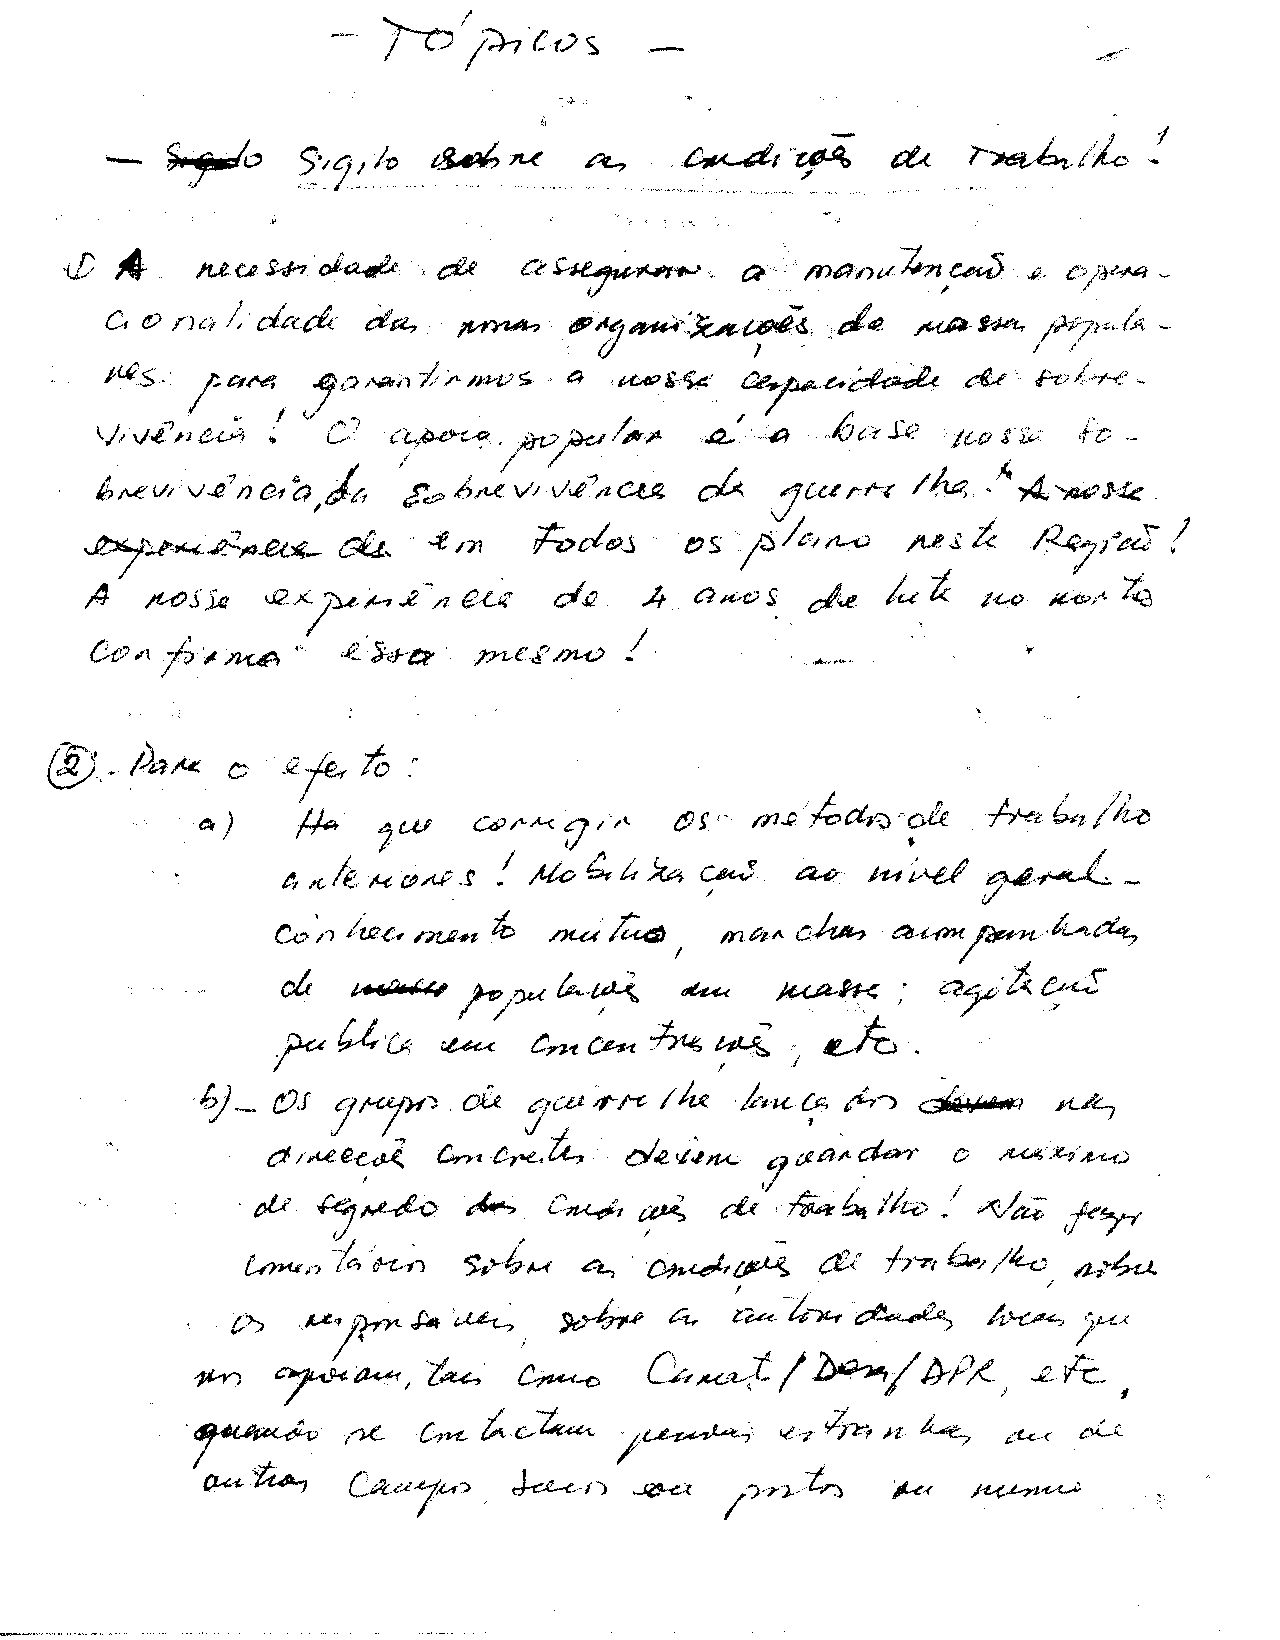 - Tópicos -
- Sigilo Sigilo sobre as condições de Trabalho!
① A necessidade de assegurar a manutenção e opera-
cionalidade das nossas organizações de massas popula-
res para garantirmos a nossa capacidade de sobre-
vivência! O apoio popular é a base nossa so-
brevivência, da sobrevivência da guerrilha! A nossa
experiência de em todos os plano nesta Região!
A nossa experiência de 4 anos de luta no norte
confirma essa mesmo!
②. Para o efeito:
a) Ha que corrigir os métodos de trabalho
anteriores! Mobilização ao nível geral -
conhecimento mutuo, marchas acompanhadas
de massas populações em massa; agitação
publica em concentrações, etc.
b)- Os grupos de guerrilha lançados devem nas
direcções concretas devem guardar o máximo
de segredo das condições de trabalho! Não fazer
comentários sobre as condições de trabalho, sobre
os responsáveis, sobre as autoridades locais que
nos apoiam, tais como Camat/Dem/DPR, etc,
quando se contactam pessoas estranhas ou de
outros Campos, sejam ou postos ou mesmo